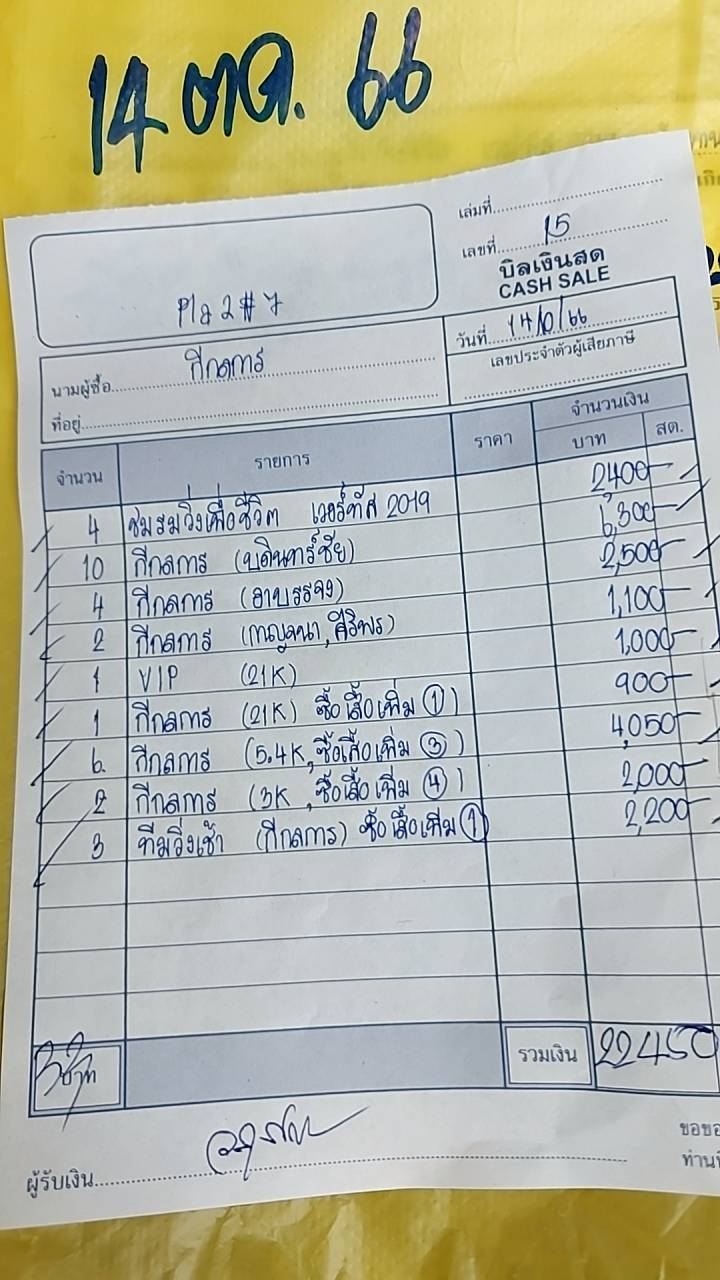 14 ตค. 66
เล่มที่
เลขที่ 15
บิลเงินสด
CASH SALE
Pla 2 # 7
วันที่ 14/0/66
นามผู้ซื้อ กีกลการ
เลขประจำตัวผู้เสียภาษี
ที่อยู่
จำนวน รายการ ราคา จำนวนเงิน
บาท สต.
4 ชมรมวิ่งเพื่อชีวิต เวอร์ทัส 2019 2,400-
10 กีกลการ (บดินทร์ชัย) 6,300-
4 กีกลการ 2,500-
2 กีกลการ (กาญจนา, ศิริพร) 1,100-
1 VIP (21K) 1,000-
1 กีกลการ (21K) ซื้อเสื้อเพิ่ม 1) 900-
6. กีกลการ (5.4K, ซื้อเสื้อเพิ่ม 3) 4,050-
2 กีกลการ (3K, ซื้อเสื้อเพิ่ม 4) 2,000-
3 ทีมวิ่งเช้า (กีกลการ) ซื้อเสื้อเพิ่ม 1 2,200-
รวมเงิน 22450
ผู้รับเงิน
ขอขอ